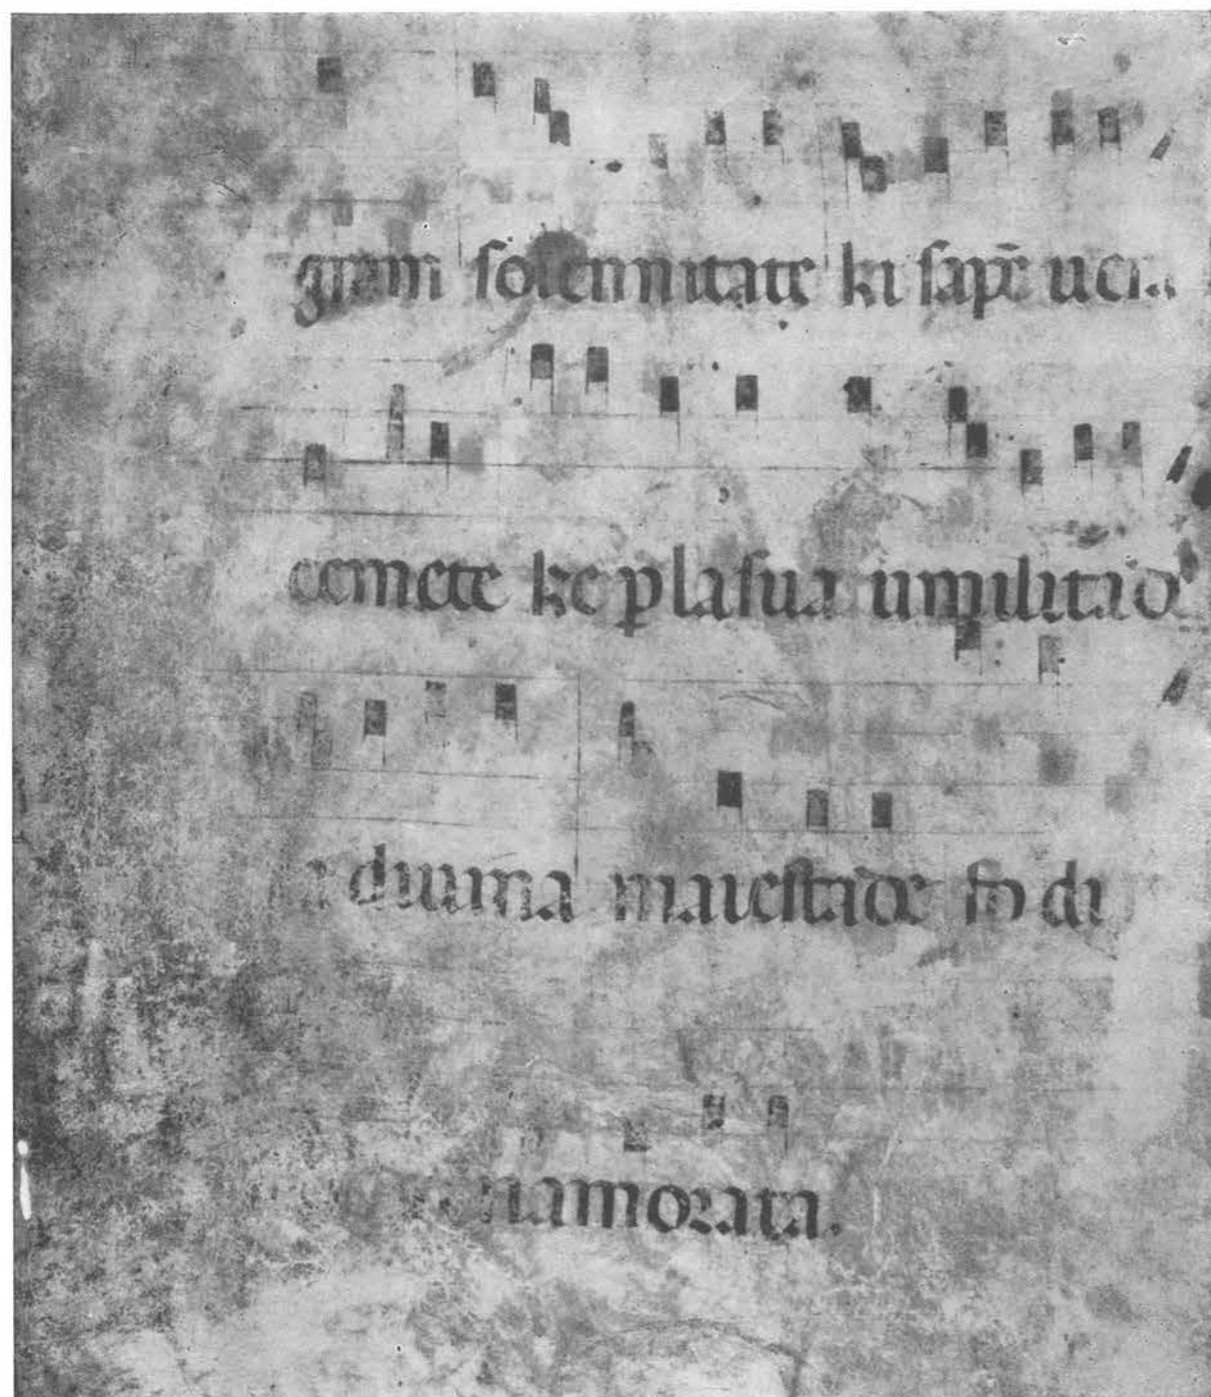 gram ſolennitate ki ſap̄e
cemete ke p la ſua umilitad
a diuina maieſtade fo di
namorata.